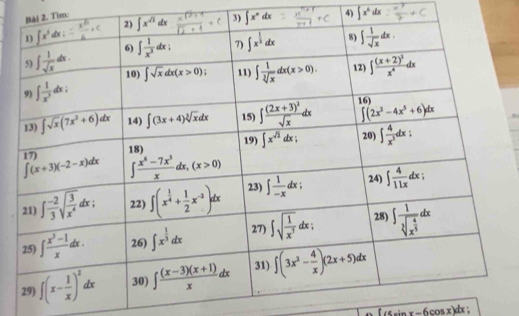 Bài 2. Tìm:
1) ∫x⁵ dx ; = x⁶/6 + C
2) ∫x^√2 dx x^(√2+1)/(√2+1) + C
3) ∫x^π dx = x^(π+1)/(π+1) + C
4) ∫x⁶ dx = x⁷/7 + C
5) ∫1/√x dx .
6) ∫1/x³ dx ;
7) ∫x^(1/3) dx
8) ∫1/√x dx .
9) ∫1/x³ dx ;
10) ∫√x dx(x > 0) ;
11) ∫ dx(x > 0) .
12) ∫(x+2)²/x⁴ dx
13) ∫√x(7x²+6)dx
14) ∫(3x+4)∛x dx
15) ∫(2x+3)²/√x dx
16) ∫(2x³−4x⁵+6)dx
17) ∫(x+3)(−2−x)dx
18) ∫(x⁴−7x³)/x dx, (x > 0)
19) ∫x^√2 dx ;
20) ∫4/x³ dx ;
21) ∫−2/3 √(3/x⁴) dx ;
22) ∫(x^(1/4) + 1/2 x⁻²)dx
23) ∫1/−x dx ;
24) ∫4/11x dx ;
25) ∫(x³−1)/x dx .
26) ∫x^(1/3) dx
27) ∫√(1/x³) dx ;
28) ∫ dx
29) ∫(x − 1/x)² dx
30) ∫(x−3)(x+1)/x dx
31) ∫(3x² − 4/x)(2x+5)dx
∫(5sin x − 6cos x)dx ;